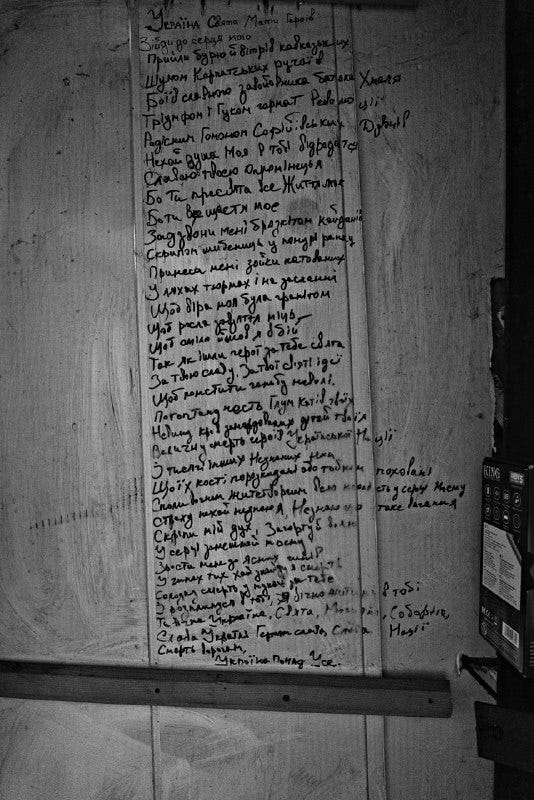 Україна Свята Мати Героїв
Зійди до серця мого
Прийди бурею й вітрів кавказьких
Шумом Карпатських ручаїв
Боїв славного завойовника батька Хмеля
Тріумфом і Гуком гармат Революції
Радісним Гомоном Софійвських Дзвонів
Нехай душа Моя в тобі відродится
Славою твоєю Опроміниться
Бо Ти пресвята все Життя моє
Бо ти все щастя моє
Задзвони мені бразкітом кайданів
Скрипом шибениць у понурі ранки
Принеси мені зойки катованих
У ляхах тюрмах і на засланні
Щоб віра моя була гранітом
Щоб росла завзяття міць
Щоб сміло йшов я в бій
Так як ішли герої за тебе свята
За твою славу. За твої святі ідеї
Щоб помстити ганьбу неволі.
Потоптану честь Глум катів твоїх
Невинну кров
Величну смерть героїв Української Нації
І тисячі інших Незнаних нам
Що їх кості порозкидані або тайком поховані
Спали вогнем Життєтворчим всю кволість у серці моєму
Страху нехай незнаю я, Незнаю що таке вагання
Скріпи мій дух, Загартуй волю
У серці замешкай моєму
Зрости мене до ясних чинів
У чинах тих хай знайду я смерть
Солодку смерть у муках за тебе
І розпливуся в тобі, Я вічно житиму в тобі
Вічна Україно, Свята, Могутня, Соборна,
Слава Україні Героям слава, Слава Нації
Смерть ворогам,
Україна Понад Усе.
KING